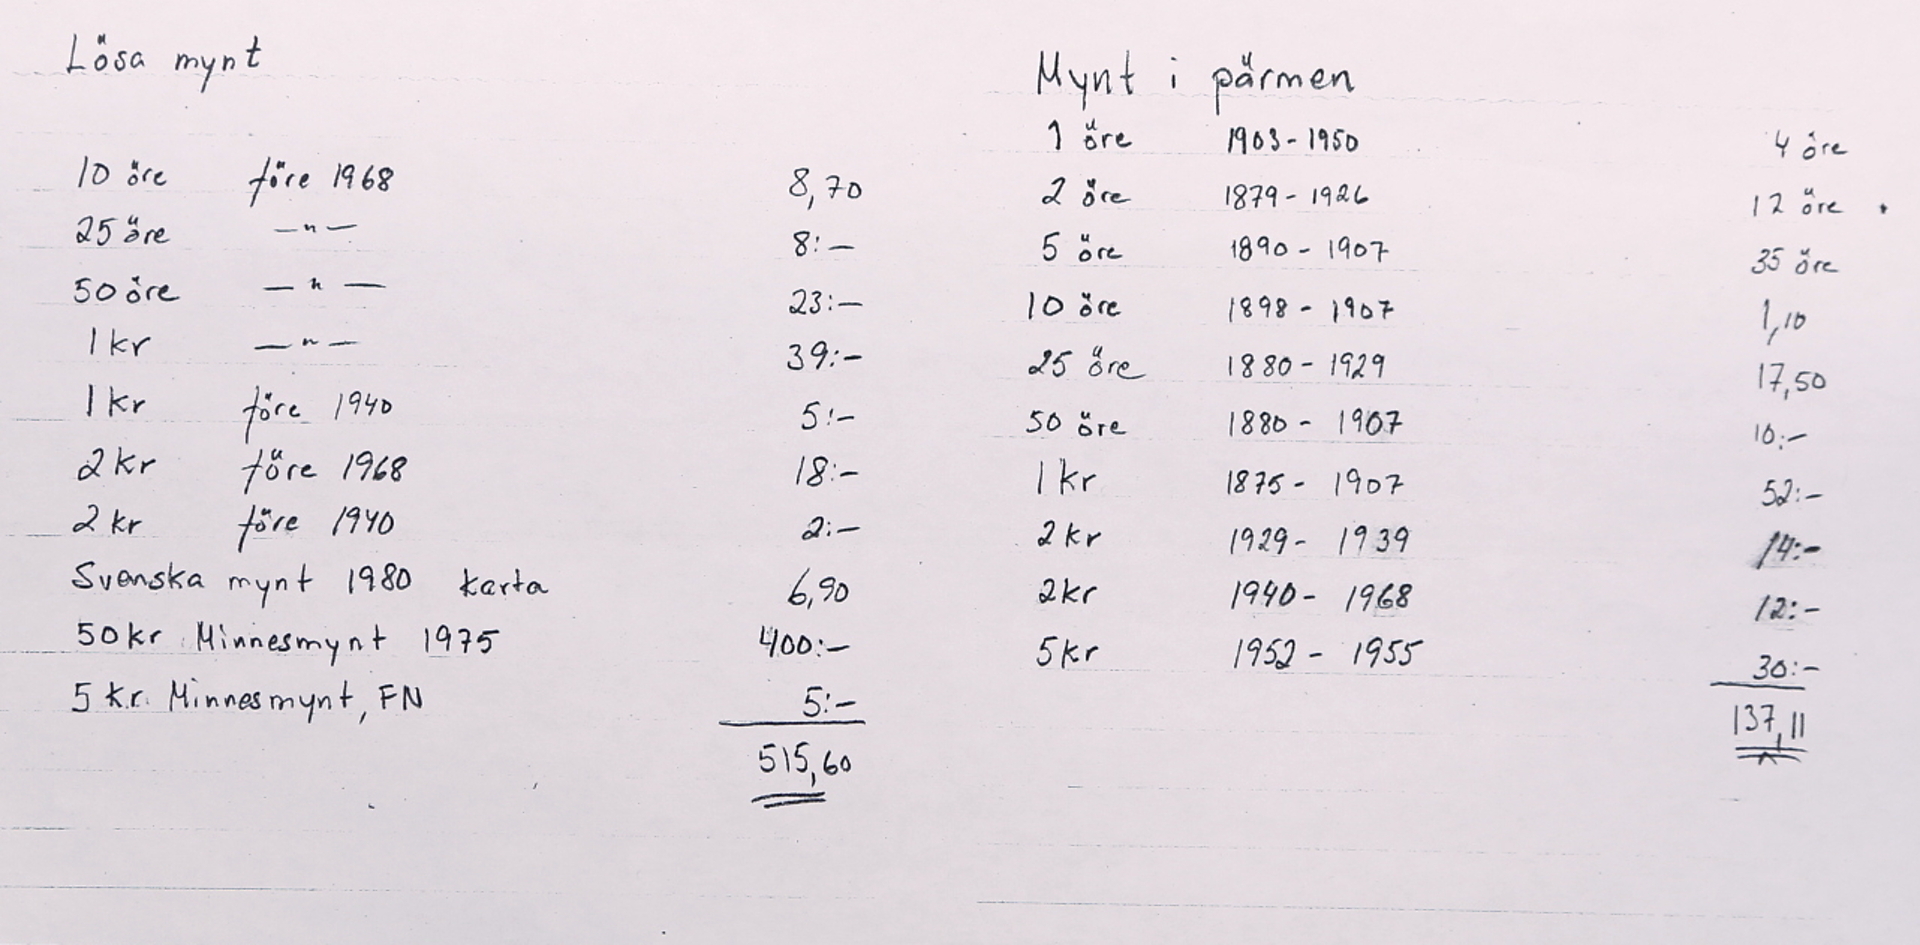 Lösa mynt
10 öre före 1968 8,70
25 öre —"— 8:—
50 öre —"— 23:—
1 kr —"— 39:—
1 kr före 1940 5:—
2 kr före 1968 18:—
2 kr före 1940 2:—
Svenska mynt 1980 karta 6,90
50 kr Minnesmynt 1975 400:—
5 kr. Minnesmynt, FN 5:—
515,60
Mynt i pärmen
1 öre 1903 - 1950 4 öre
2 öre 1879 - 1926 12 öre
5 öre 1890 - 1907 35 öre
10 öre 1898 - 1907 1,10
25 öre 1880 - 1929 17,50
50 öre 1880 - 1907 10:—
1 kr 1875 - 1907 52:—
2 kr 1929 - 1939 14:—
2 kr 1940 - 1968 12:—
5 kr 1952 - 1955 30:—
137,11